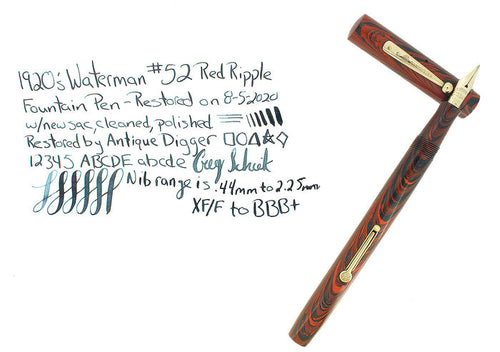 1920's Waterman #52 Red Ripple
Fountain Pen - Restored on 8-5-2020
w/new sac, cleaned, polished
Restored by Antique Digger
12345 ABCDE abcde Greg
Nib range is .44mm to 2.25mm
XF/F to BBB+